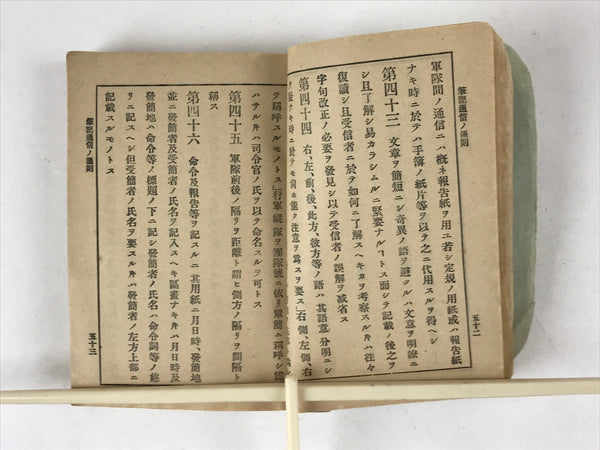 筆記通信ノ通則
軍隊間ノ通信ニハ概ネ報告紙ヲ用ユ若シ定規ノ用紙或ハ報告紙
ナキ時ニ於テハ手簿ノ紙片等ヲ以テ之ニ代用スルヲ得ヘシ
第四十三 文章ヲ簡短ニシ奇異ノ語ヲ避クルハ文意ヲ明瞭ニ
シ且了解シ易カラシムルニ緊要ナルヿトス而シテ記載ノ後之ヲ
復讀シ且受信者ニ於テ如何ニ了解スヘキカヲ考察スル片ハ往々
字句改正ノ必要ヲ發見シ以テ受信者ノ誤解ヲ減省ス
第四十四 右、左、前、後、此方、彼方等ノ語ハ其語意分明ニシ
ナキ時ニ於テモ尚ニ能ク注意ヲ爲スヲ要ス「右側左側、右
五十二
筆記通信ノ通則
テ稱呼スルモノトス」行軍縱隊ヲ團隊號ニ依リ單簡ニ稱呼シ能
ハサル片ハ司令官ノ氏ヲ以テ命名スルヲ可トス
第四十五 軍隊前後ノ隔リヲ距離ト謂ヒ側方ノ隔リヲ間隔ト
稱ス
第四十六 命令及報告等ヲ記スルニ其用紙ニ月日時、發簡地
並ニ發簡者及受簡者ノ氏名ヲ記入スヘキ區畫ナキ片ハ月日時及
發簡地ハ命令等ノ標題ノ下ニ記シ發簡者ノ氏名ハ命令詞等ノ終
リニ記スヘシ但受簡者ノ氏名ヲ要スル片ハ發簡者ノ左方上部ニ
記載スルモノトス
五十三